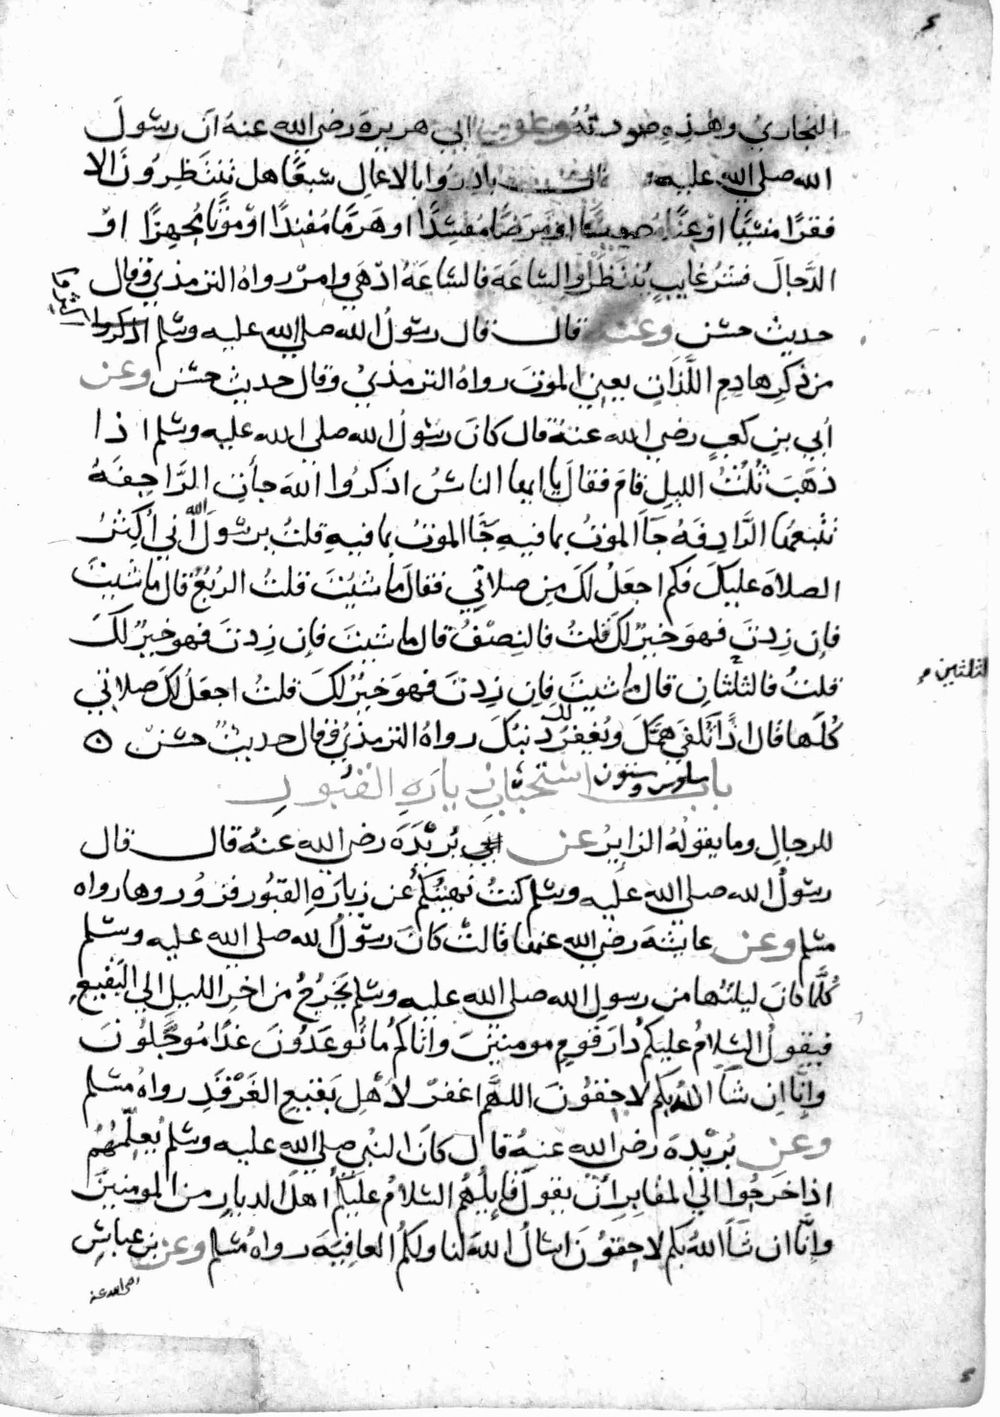 ٤
البخاري وهذه صورته وعن ابي هريرة رضي الله عنه ان رسولَ
الله صلى الله عليه قال بادِروا بالاعمالِ سبعًا هل تنتظِرُونَ الا
فقرًا منسيًا او غنًا او مَرَضًا مُفسِدًا او هَرَمًا مُفنِدًا او موتًا مُجهِزًا اوِ
الدَّجالَ فشرُّ غايبٍ يُنتَظَرُ اوِ الساعَةَ فالساعَةُ ادْهَي وامرّ رواه الترمذي وقال
حديث حسن وعنه قال قال رسولُ الله صلى الله عليه وسلم اذكروا
اكثروا
من ذكرِ هادِمِ اللَّذاتِ يعني الموتَ رواهُ الترمذيُ وقال حديث حسن وعن
اُبي بنِ كعبٍ رضي الله عنهُ قال كانَ رسُولُ الله صلى الله عليه وسلم اذا
ذهَبَ ثُلُثُ الليلِ قامَ فقالَ يا ايها الناسُ اذكُروا اللهَ جأتِ الرَّاجِفَةُ
تتْبعُها الرَّادِفَهُ جَآ الموتُ بما فيهِ جَآ الموتُ بما فيهِ قلتُ يرسُولَ الله اني اُكثِرُ
الصلاةَ عليكَ فكم اجعَلُ لكَ مِن صلاتي فقالَ ما شيْتَ قلتُ الرُبُعَ قال ما شيتَ
فإن زِدتَ فهوَ خيرٌ لكَ قلتُ فالنِصْفُ قال ما شيتَ فإن زِدتَ فهو خيرٌ لكَ
قلتُ فالثلثانِ قال ما شيتَ فإن زِدتَ فهوَ خيرٌ لكَ قلتُ اجعَلُ لكَ صلاتي
الثلثين
كُلَّها قال اذًا تُكفي همَّكَ ويُغفِرُ لك ذنبُكَ رواهُ الترمذيُ وقال حديث حسن
باب سادس وستون استحباب زيارةِ القبُورِ
للرجالِ وما يقولهُ الزايرُ عن بُريْدَةَ رضي الله عنهُ قال قال
رسولُ الله صلى الله عليه وسلم كنتُ نهيتُكُم عن زيارةِ القبورِ فزُورُوها رواه
مسلم وعن عايشَةَ رضي الله عنها قالت كانَ رسولُ الله صلى الله عليه وسلم
كُلَّما كانَ ليلتُها من رسولِ الله صلى الله عليه وسلم يَخرجُ من اخرِ الليلِ الي البَقيعِ
فيقولُ السلامُ عليكم دارَ قومٍ مومنينَ واتاكم ما تُوعَدُونَ غدًا مُوجَّلُونَ
وانَّا ان شآ اللهُ بكم لاحِقُونَ اللهمَّ اغفرْ لاهْلِ بَقيعِ الغَرْقَدِ رواهُ مسلم
وعن بُريْدةَ رضي الله عنهُ قال كانَ النبي صلى الله عليه وسلم يُعلِّمُهُم
اذا خرَجُوا الي المقابِرِ انْ يقولَ قايِلُهُم السلامُ عليكُم اهلَ الديارِ من المومنينَ
وانَّا ان شآ اللهُ بكم لاحِقُونَ اسالُ اللهَ لنا ولكُمُ العافِيَةَ رواهُ مسلم وعن بنِ عباسٍ
رضي الله عنه